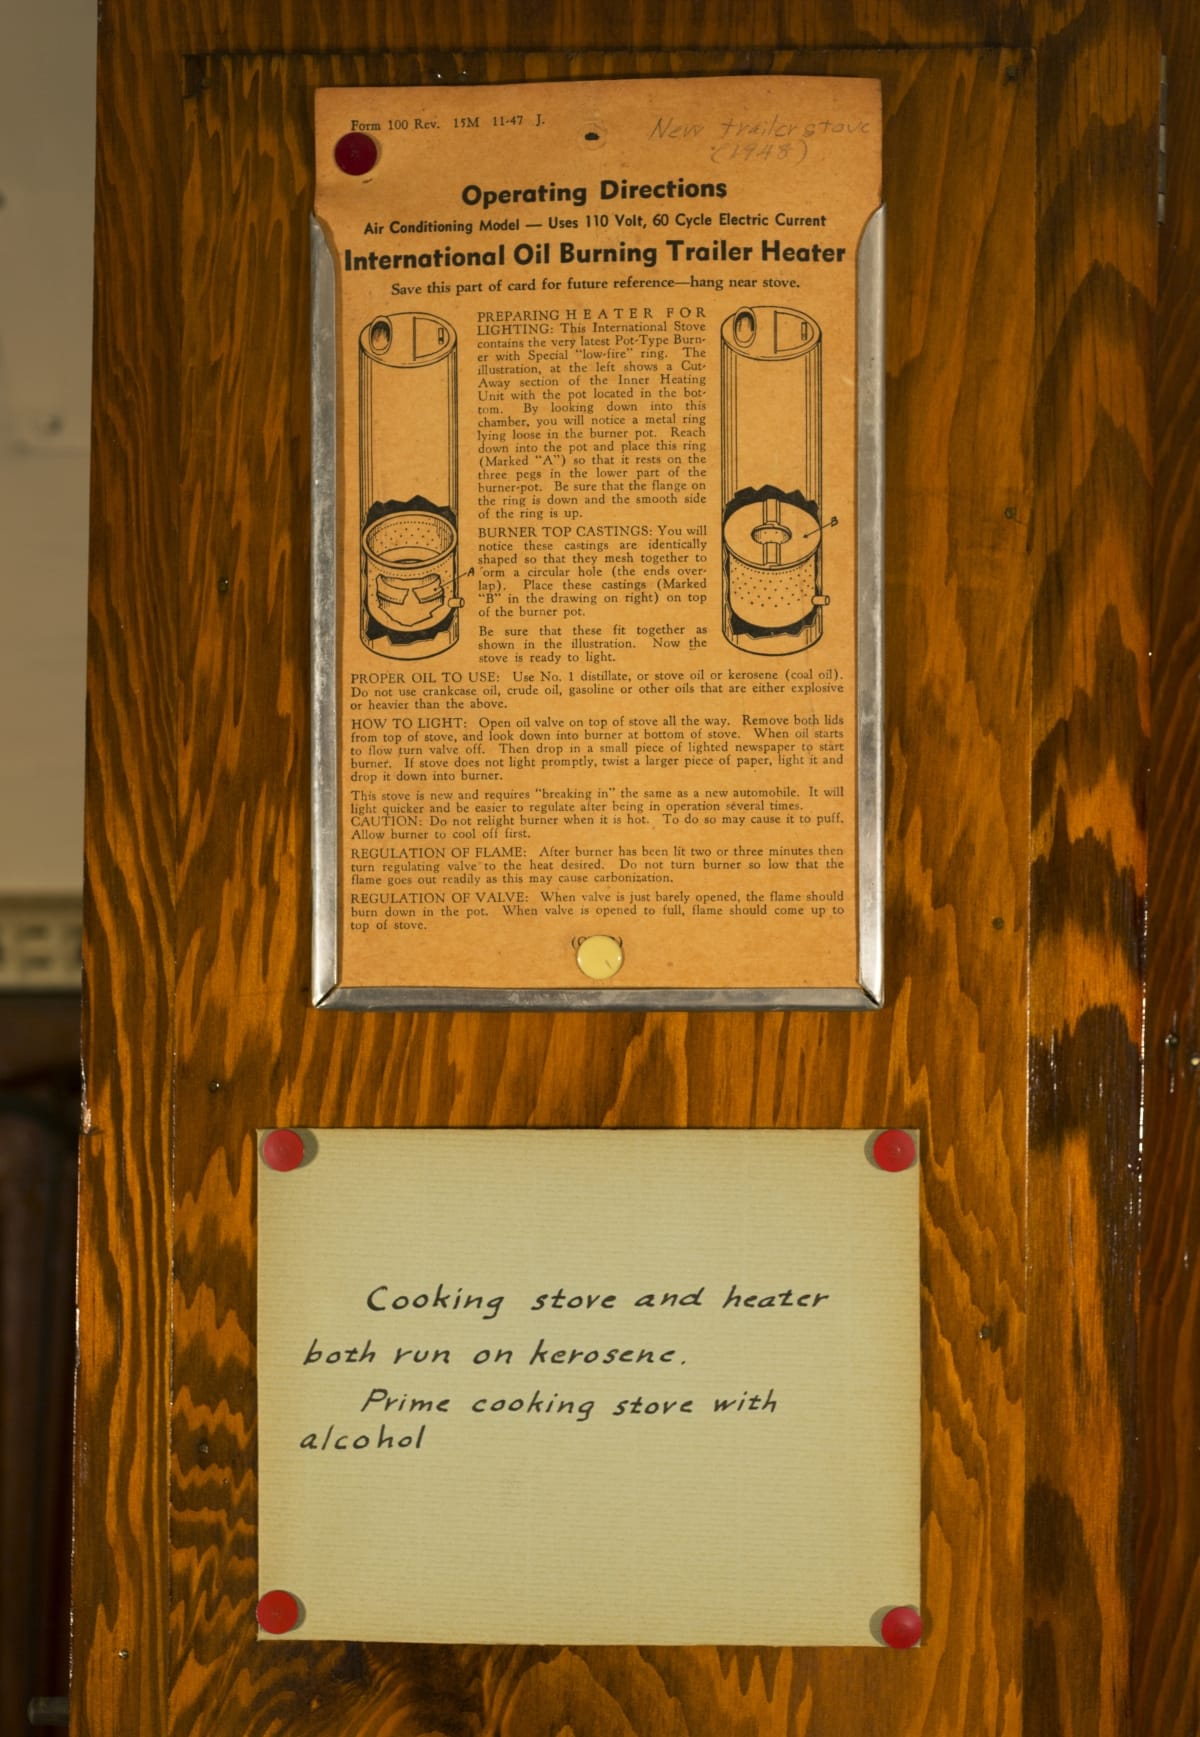 Form 100 Rev. 15M 11-47 J.
New trailer stove
(1948)
Operating Directions
Air Conditioning Model — Uses 110 Volt, 60 Cycle Electric Current
International Oil Burning Trailer Heater
Save this part of card for future reference—hang near stove.
PREPARING HEATER FOR
LIGHTING: This International Stove
contains the very latest Pot-Type Burn-
er with Special "low-fire" ring. The
illustration, at the left shows a Cut-
Away section of the Inner Heating
Unit with the pot located in the bot-
tom. By looking down into this
chamber, you will notice a metal ring
lying loose in the burner pot. Reach
down into the pot and place this ring
(Marked "A") so that it rests on the
three pegs in the lower part of the
burner-pot. Be sure that the flange on
the ring is down and the smooth side
of the ring is up.
BURNER TOP CASTINGS: You will
notice these castings are identically
shaped so that they mesh together to
orm a circular hole (the ends over-
lap). Place these castings (Marked
"B" in the drawing on right) on top
of the burner pot.
Be sure that these fit together as
shown in the illustration. Now the
stove is ready to light.
A
B
PROPER OIL TO USE: Use No. 1 distillate, or stove oil or kerosene (coal oil).
Do not use crankcase oil, crude oil, gasoline or other oils that are either explosive
or heavier than the above.
HOW TO LIGHT: Open oil valve on top of stove all the way. Remove both lids
from top of stove, and look down into burner at bottom of stove. When oil starts
to flow turn valve off. Then drop in a small piece of lighted newspaper to start
burner. If stove does not light promptly, twist a larger piece of paper, light it and
drop it down into burner.
This stove is new and requires "breaking in" the same as a new automobile. It will
light quicker and be easier to regulate after being in operation several times.
CAUTION: Do not relight burner when it is hot. To do so may cause it to puff.
Allow burner to cool off first.
REGULATION OF FLAME: After burner has been lit two or three minutes then
turn regulating valve to the heat desired. Do not turn burner so low that the
flame goes out readily as this may cause carbonization.
REGULATION OF VALVE: When valve is just barely opened, the flame should
burn down in the pot. When valve is opened to full, flame should come up to
top of stove.
Cooking stove and heater
both run on kerosene.
Prime cooking stove with
alcohol